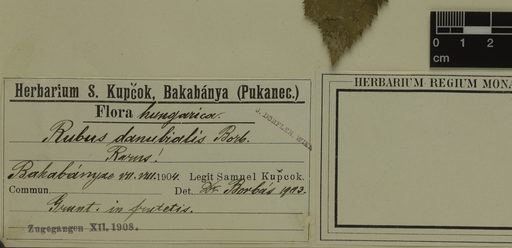 0 1 2
cm
Herbarium S. Kupčok, Bakabánya (Pukanec.)
Flora hungarica.
J. DÖRFLER, WIEN
Rubus danubialis Borb.
Rarus!
Bakabányae VII. VIII. 1904. Legit Samuel Kupčok.
Commun. Det. Dr Borbás 1903.
in fruticetis.
Zugegangen XII. 1908.
HERBARIUM REGIUM MONA